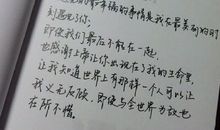 幸福的事情是我在最美好的时
刻遇见了你,
即使我们最后不能在一起,
也感谢上帝让你出现在了我的生命里
让我知道世界上有那样一个人可以让
我义无反顾,即使与全世界为敌也
在所不惜。